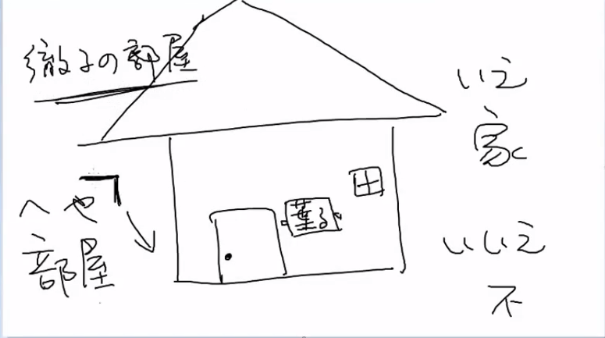 徹子の部屋
いえ
家
へや
部屋
いいえ
不